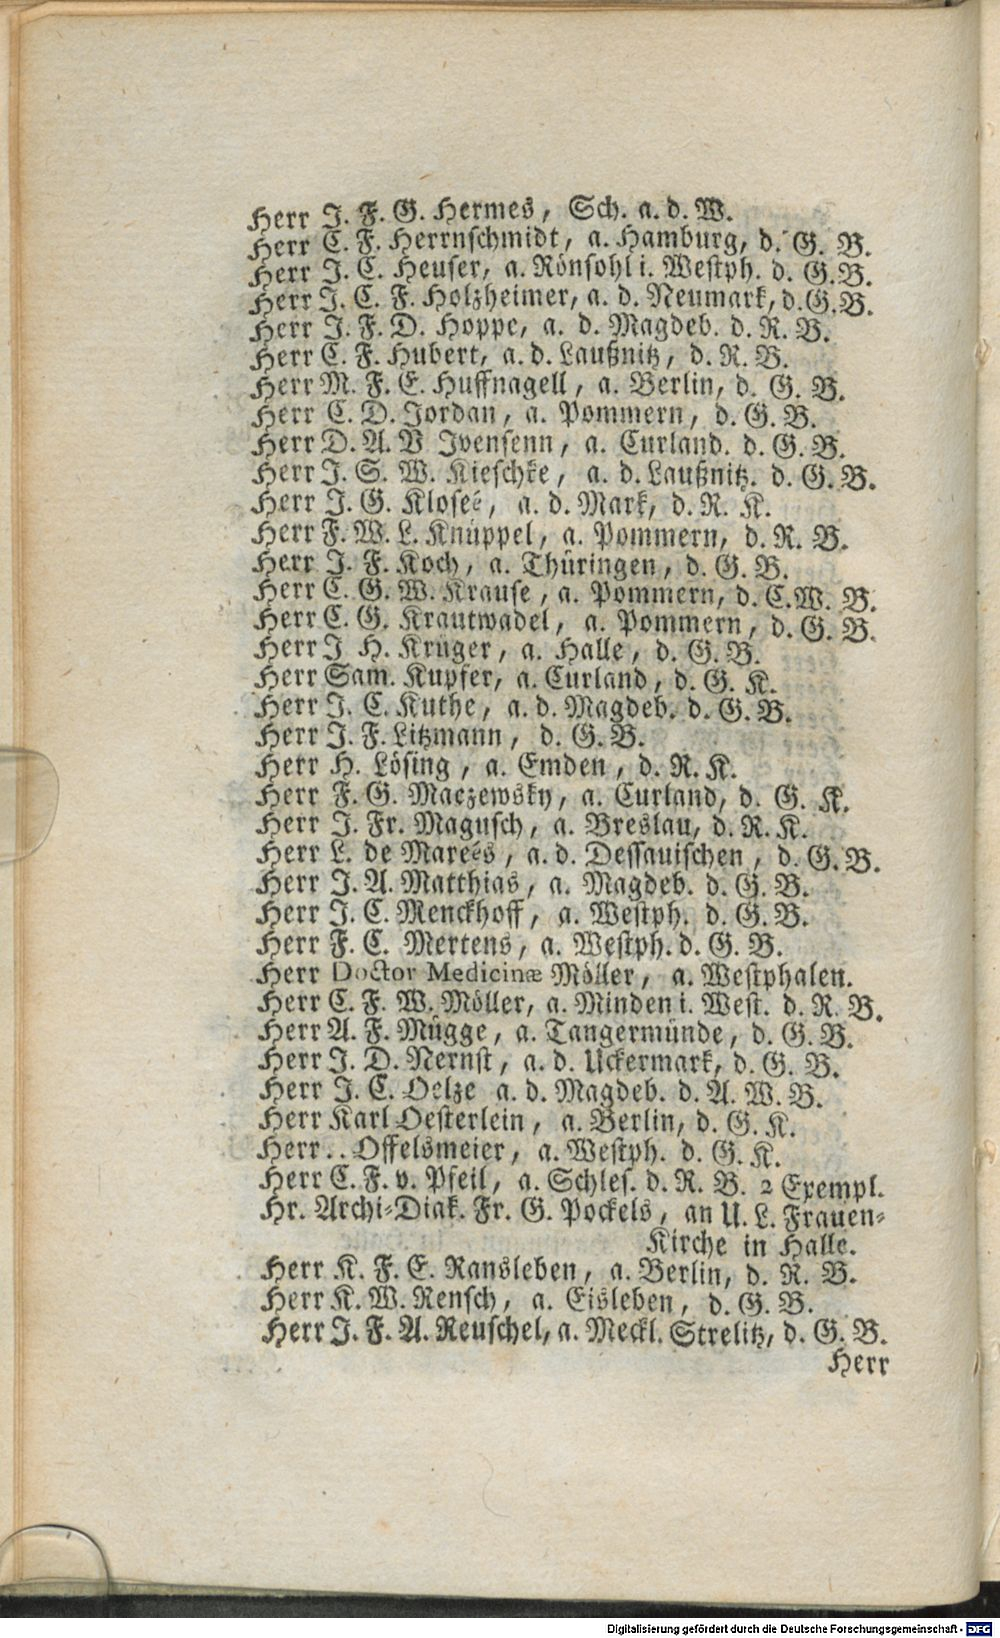 Herr J. F. G. Hermes, Sch. a. d. W.
Herr C. F. Herrnschmidt, a. Hamburg, d. G. B.
Herr J. C. Heuser, a. Rönsohl i. Westph. d. G. B.
Herr J. C. F. Holzheimer, a. d. Neumark, d. G. B.
Herr J. F. D. Hoppe, a. d. Magdeb. d. R. B.
Herr C. F. Hubert, a. d. Laußnitz, d. R. B.
Herr M. F. E. Huffnagell, a. Berlin, d. G. B.
Herr C. D. Jordan, a. Pommern, d. G. B.
Herr D. A. V Jvensenn, a. Curland. d. G. B.
Herr J. S. W. Kieschke, a. d. Laußnitz. d. G. B.
Herr J. G. Kloseé, a. d. Mark, d. R. K.
Herr F. W. L. Knüppel, a. Pommern, d. R. B.
Herr J. F. Koch, a. Thüringen, d. G. B.
Herr C. G. W. Krause, a. Pommern, d. C. W. B.
Herr C. G. Krautwadel, a. Pommern, d. G. B.
Herr J H. Krüger, a. Halle, d. G. B.
Herr Sam. Kupfer, a. Curland, d. G. K.
Herr J. C. Kuthe, a. d. Magdeb. d. G. B.
Herr J. F. Litzmann, d. G. B.
Herr H. Lösing, a. Emden, d. R. K.
Herr F. G. Maczewsky, a. Curland, d. G. K.
Herr J. Fr. Magusch, a. Breslau, d. R. K.
Herr L. de Mareés, a. d. Dessauischen, d. G. B.
Herr J. A. Matthias, a. Magdeb. d. G. B.
Herr J. C. Menckhoff, a. Westph. d. G. B.
Herr F. C. Mertens, a. Westph. d. G. B.
Herr Doctor Medicinæ Möller, a. Westphalen.
Herr C. F. W. Möller, a. Minden i. West. d. R. B.
Herr A. F. Mügge, a. Tangermünde, d. G. B.
Herr J. D. Nernst, a. d. Uckermark, d. G. B.
Herr J. C. Oelze a. d. Magdeb. d. A. W. B.
Herr Karl Oesterlein, a. Berlin, d. G. K.
Herr .. Offelsmeier, a. Westph. d. G. K.
Herr C. F. v. Pfeil, a. Schles. d. R. B. 2 Exempl.
Hr. Archi-Diak. Fr. G. Pockels, an U. L. Frauen-
Kirche in Halle.
Herr K. F. E. Ransleben, a. Berlin, d. R. B.
Herr K. W. Rensch, a. Eisleben, d. G. B.
Herr J. F. A. Reuschel, a. Meckl. Strelitz, d. G. B.
Herr
Digitalisierung gefördert durch die Deutsche Forschungsgemeinschaft - DFG